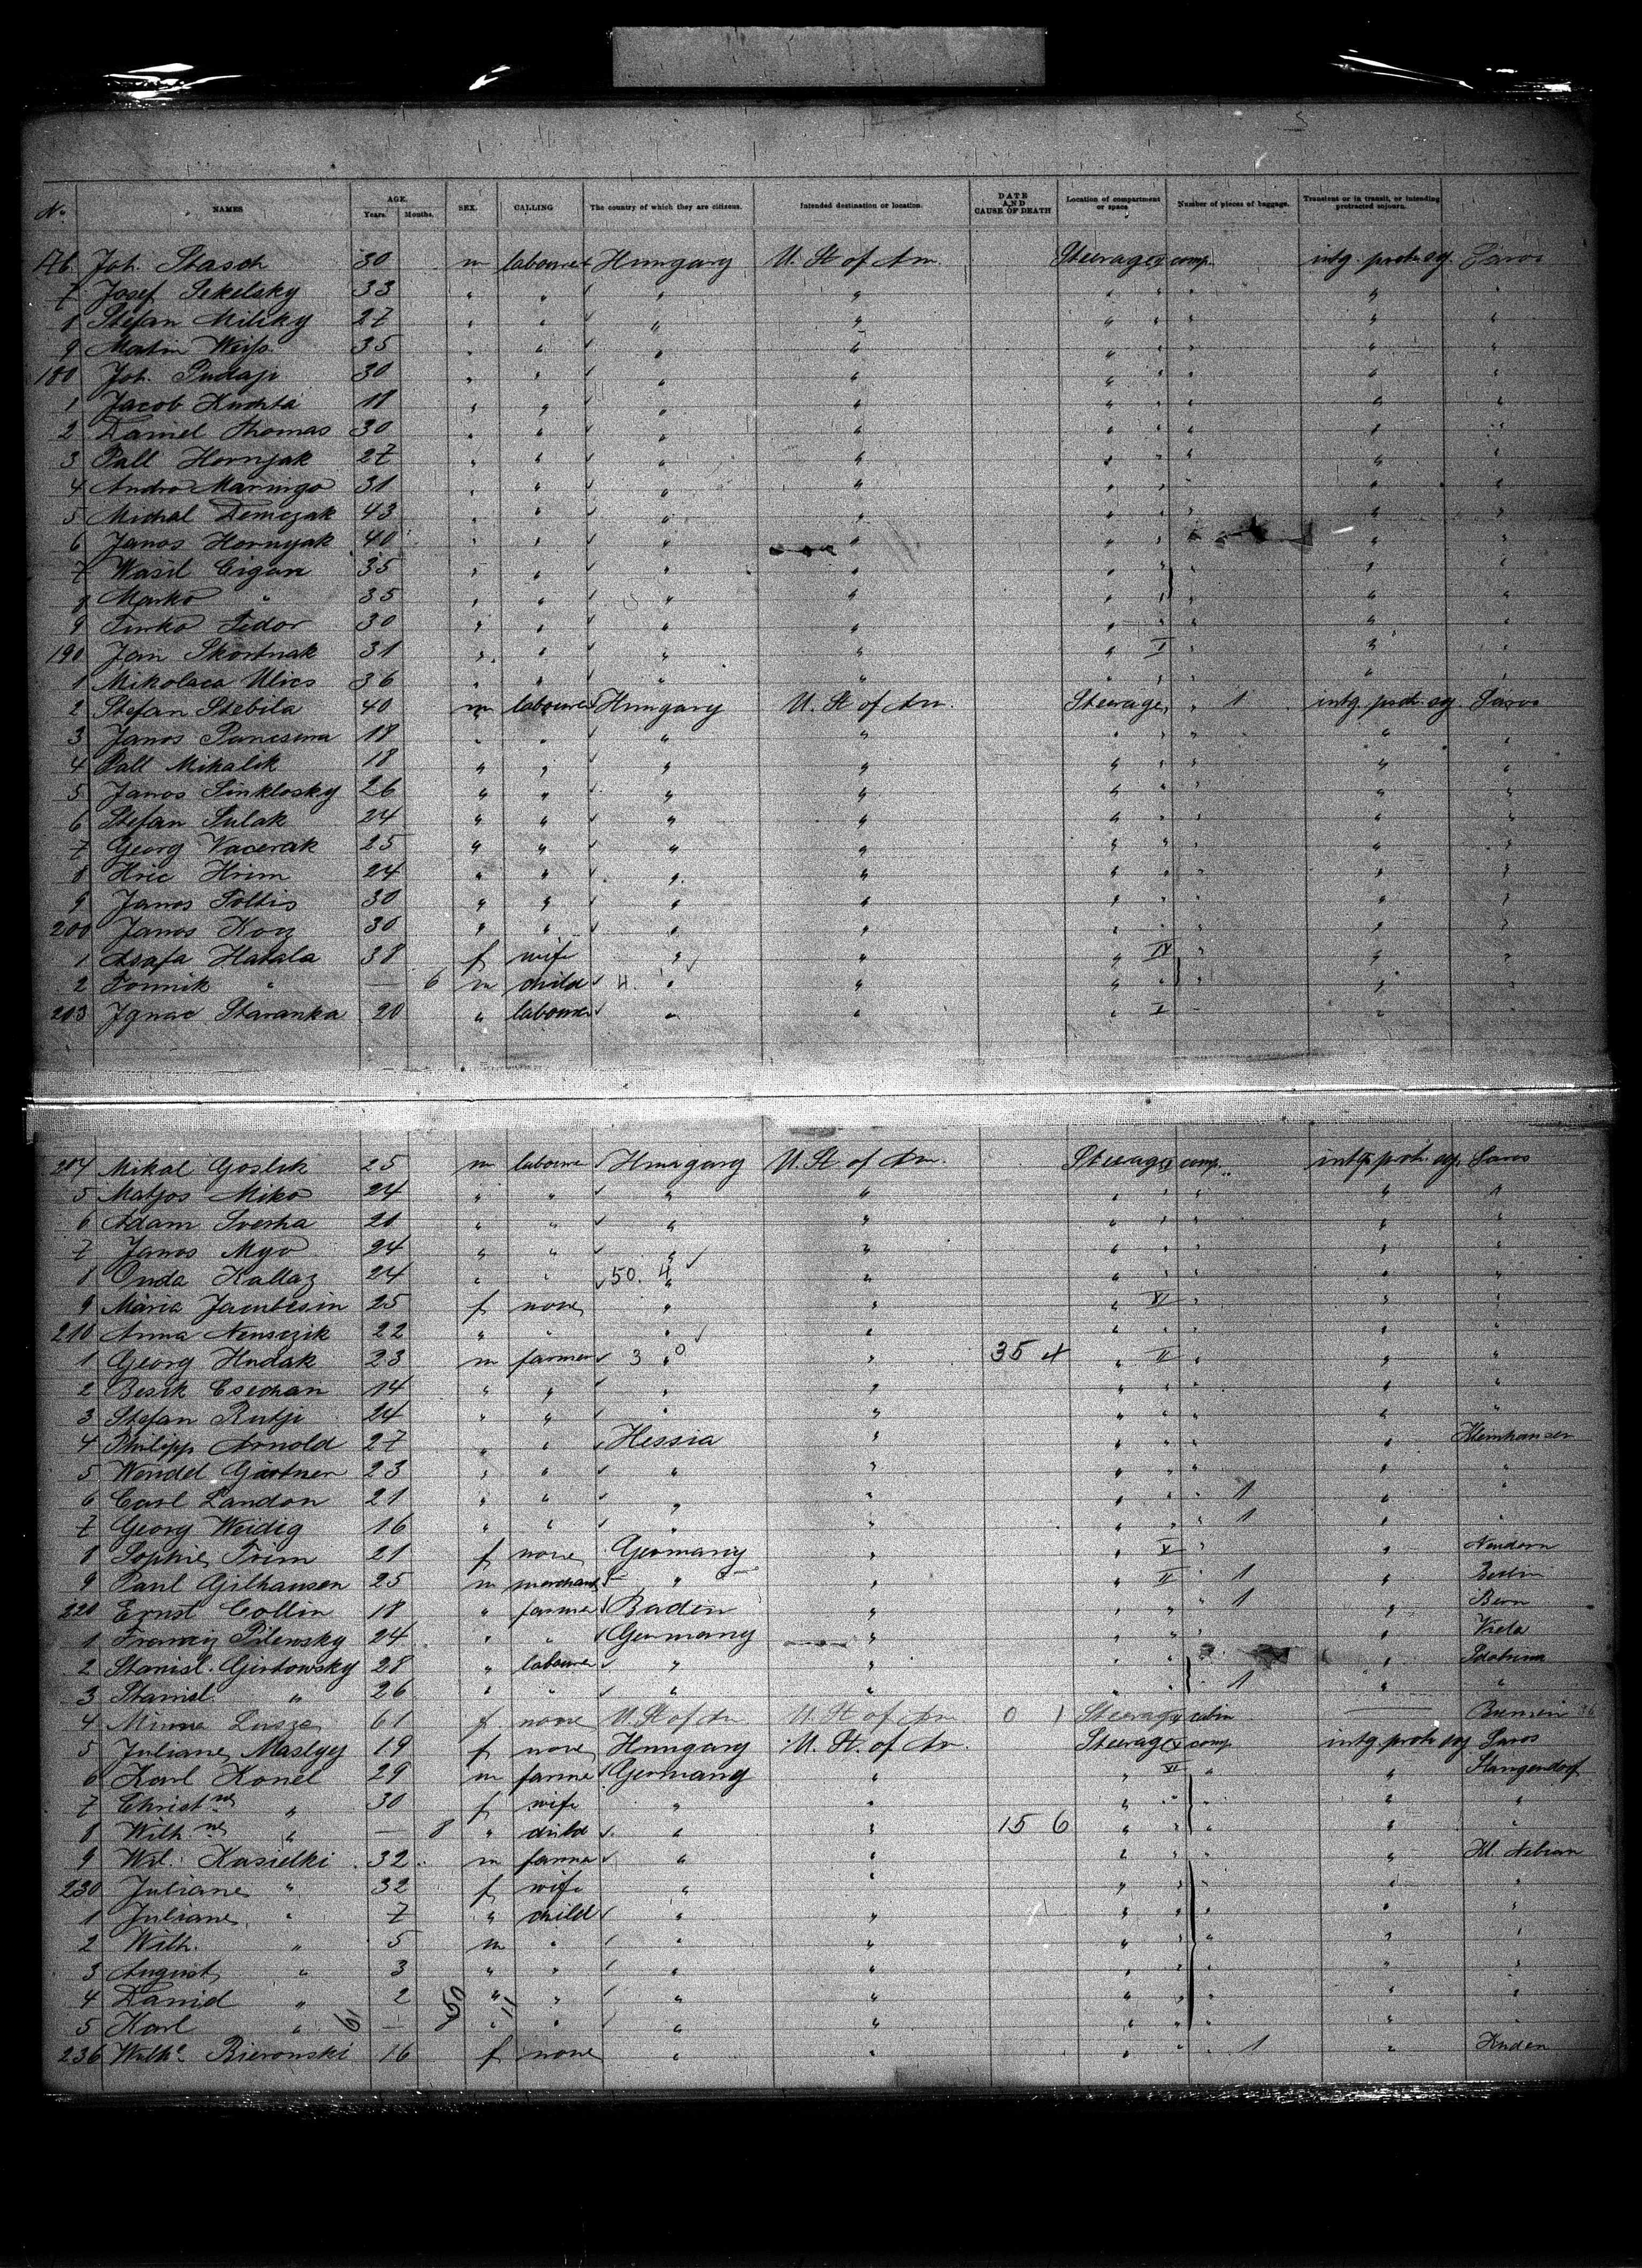 5
No. NAMES AGE. Years. Months. SEX. CALLING The country of which they are citizens. Intended destination or location. DATE AND CAUSE OF DEATH Location of compartment or space Number of pieces of baggage. Transient or in transit, or intending protracted sojourn.
176. Joh. Stasch 30 m labourer Hungary U. St of Am. Steerage comp. intg. protr. soj. Saros
7 Josef Sekelsky 33 " " " " " " " " "
8 Stefan Milsky 27 " " " " " " " " "
9 Martin Weiss 35 " " " " " " " " "
180 Joh. Pudaji 30 " " " " " " " " "
1 Jacob Kuchta 18 " " " " " " " " "
2 Daniel Thomas 30 " " " " " " " " "
3 Pall Hornjak 27 " " " " " " " " "
4 Andro Maringo 31 " " " " " " " " "
5 Michal Demczak 43 " " " " " " " " "
6 Janos Hornyak 40 " " " " " " " " "
7 Wasil Cigan 35 " " " " " " " " "
8 Marko " 35 " " " " " " " " "
9 Timko Fedor 30 " " " " " " " " "
190 Jan Skortnak 31 " " " " " I " " "
1 Mikolaca Ulics 36 " " " " " " " " "
2 Stefan Stebila 40 m labourer Hungary U. St of Am. Steerage " 1 intg. protr. soj. Saros
3 Janos Pancsura 18 " " " " " " " " "
4 Pall Mikalik 18 " " " " " " " " "
5 Janos Sinklosky 26 " " " " " " " " "
6 Stefan Sulak 24 " " " " " " " " "
7 Georg Vacerak 25 " " " " " " " " "
8 Hric Hrim 24 " " " " " " " " "
9 Janos Soltis 30 " " " " " " " " "
200 Janos Korz 30 " " " " " " " " "
1 Hatala 38 f wife " " " IV " " "
2 " — 6 m child " " " " " " "
203 Ignac Staranka 20 " labourer " " " I " "
204 Mikal Goslik 25 m labourer Hungary U. St of Am. Steerage comp. intg. protr. soj. Saros
5 Matjos Miko 24 " " " " " " " " "
6 Adam Sverha 21 " " " " " " " " "
7 Janos Myo 24 " " " " " " " " "
8 Onda Kallaz 24 " " 50. 4 " " " " " "
9 Maria Jacubcsin 25 f none " " " VI " " "
210 Anna Nemsczik 22 " " " " " " " " "
1 Georg Hudak 23 m farmer 3 " 0 " 35 4 " II " " "
2 Besik Csechan 14 " " " " " " " " "
3 Stefan Rutji 24 " " " " " " " " "
4 Philipp Arnold 27 " " Hessia " " " " " Kleinhausen
5 Wendel Gärtner 23 " " " " " " " " "
6 Carl Landon 21 " " " " " " " 1 " "
7 Georg Weidig 16 " " " " " " " 1 " "
8 Sophie Trim 21 f none Germany " " V " " Neudorn
9 Paul Gilhausen 25 m merchant " " " II " 1 " Berlin
220 Ernst Collin 18 " farmer Baden " " " " 1 " Bern
1 Franciz Pilewsky 24 " " Germany " " " " "
2 Stanisl. Girtowsky 28 " labourer " " " " "
3 Stanisl. " 26 " " " " " " " 1 " "
4 Minna Lusze 61 f none U. St of Am U. St of Am 0 1 Steerage cabin — Bremen
5 Juliane Maslyej 19 f none Hungary U. St. of Am. Steerage comp intg. protr. soj Saros
6 Karl Konel 29 m farmer Germany " " VI " " Stangendorf
7 Christ.ne " 30 f wife " " " " " " "
8 Wilh.ne " — 8 " child " " 15 6 " " " " "
9 Wil. Kasielki 32 m farmer " " " " " " Kl. Nebrau
230 Juliane " 32 f wife " " " " " " "
1 Juliane " 7 " child " " " " " " "
2 Wilh. " 5 m " " " " " " " "
3 August " 3 " " " " " " " " "
4 Daniel " 2 " " " " " " " " "
5 Karl " — " " " " " " " " "
236 Wilh.e Bieronski 16 f none " " " " 1 "